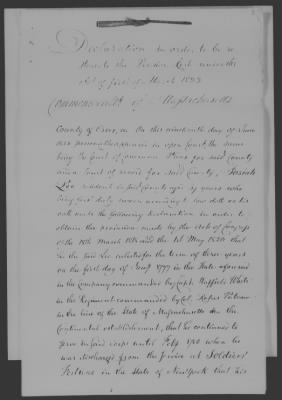 Declaration in order to be re
stored to the Pension List under the
act of first of March 1823
Commonwealth of Massachusetts
County of Essex, On this nineteenth day of June
personally appeared in open Court, the same
being the Court of Common Pleas for said County
and a Court of record for said County, Josiah
resident in said County aged 59 years who
being first duly sworn according to law doth on his
oath make the following declaration in order to
obtain the provision made by the acts of Congress
of the 18th March 1818 and the 1st May 1820 that
he the said enlisted for the term of three years
on the first day of 1777 in the State aforesaid
in the Company commanded by Capt. Haffield White
in the Regiment commanded by Col. Rufus Putnam
in the line of the State of Massachusetts on the
Continental establishment, that he continued to
serve in said corps until 1780 when he
was discharged from the service at Soldiers
Fortune in the State of New York that his